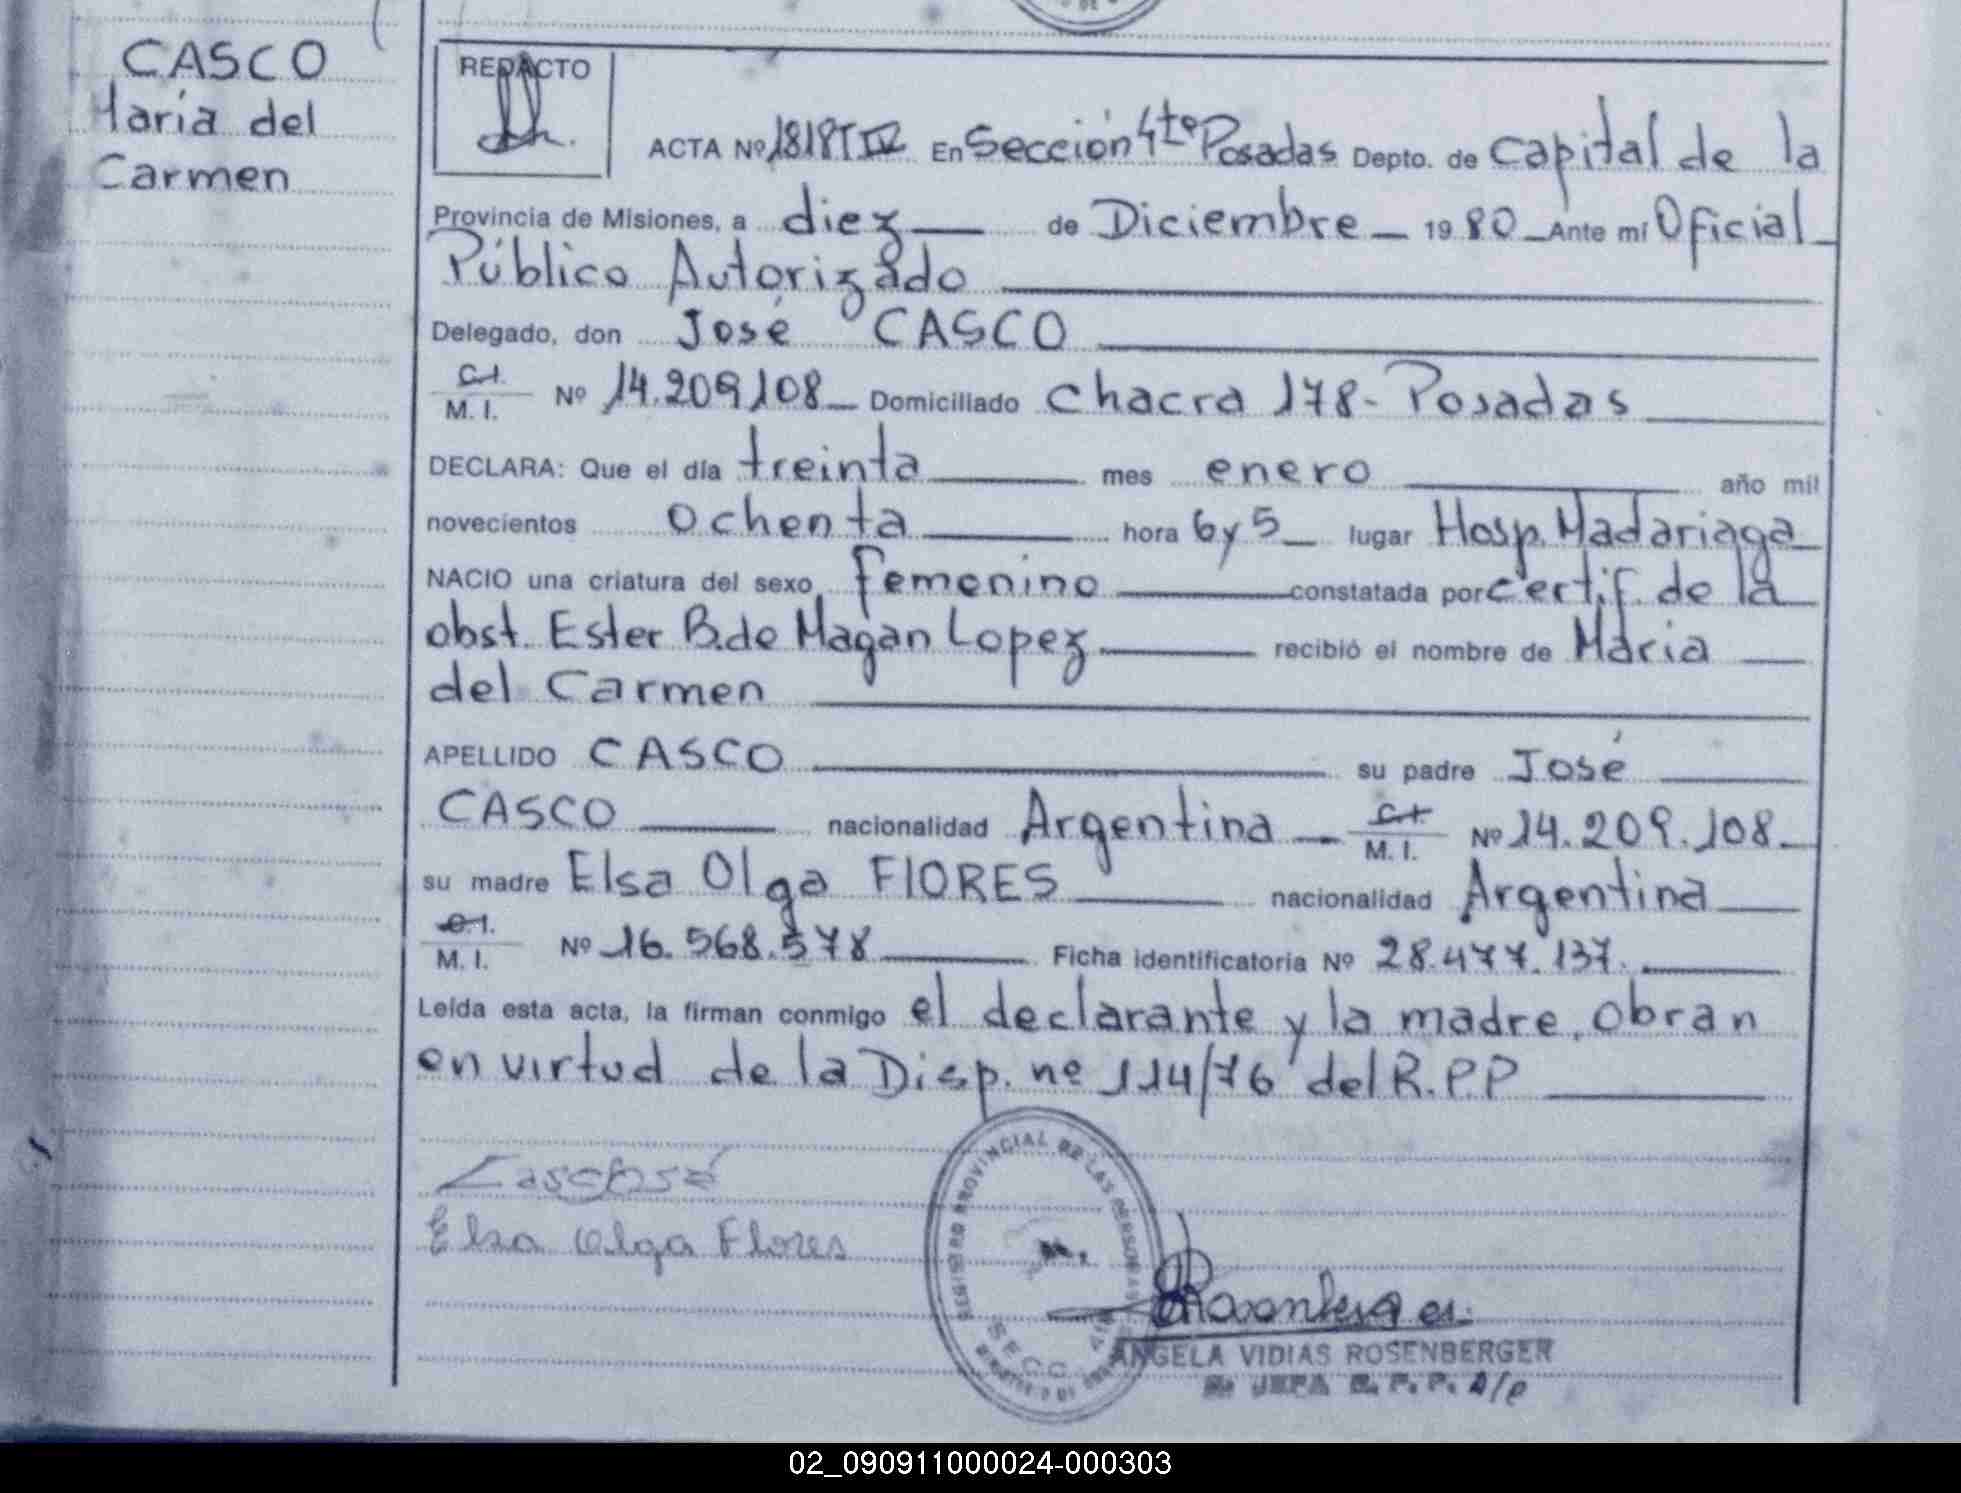 CASCO
María del
Carmen
REDACTO
ACTA Nº 1818 T IV En Sección 4ta Posadas Depto. de Capital de la
Provincia de Misiones, a diez de Diciembre 19 80 Ante mí Oficial
Público Autorizado
Delegado, don José CASCO
C.I.
M. I. Nº 14.209.108 Domiciliado Chacra 178 - Posadas
DECLARA: Que el día treinta mes enero año mil
novecientos ochenta hora 6 y 5 lugar Hosp. Madariaga
NACIO una criatura del sexo femenino constatada por certif. de la
obst. Ester B. de Magan Lopez recibió el nombre de María
del Carmen
APELLIDO CASCO su padre José
CASCO nacionalidad Argentina C.I.
M. I. Nº 14.209.108
su madre Elsa Olga FlORES nacionalidad Argentina
C.I.
M. I. Nº 16.568.578 Ficha identificatoria Nº 28.477.137.
Leída esta acta, la firman conmigo el declarante y la madre, obran
en virtud de la Disp. nº 114/76 del R.P.P
Casco José
Elsa Olga Flores
REGISTRO PROVINCIAL DE LAS PERSONAS
SECC.
Rosenberger
ANGELA VIDIAS ROSENBERGER
JEFA R. P. P. A/C
02_090911000024-000303